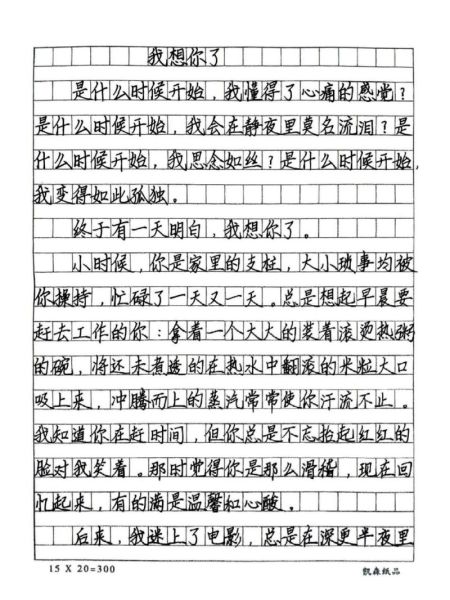 我想你了
是什么时候开始，我懂得了心痛的感觉？
是什么时候开始，我会在静夜里莫名流泪？是
什么时候开始，我思念如丝？是什么时候开始，
我变得如此孤独。
终于有一天明白，我想你了。
小时候，你是家里的支柱，大小琐事均被
你操持，忙碌了一天又一天。总是想起早晨要
赶去工作的你：拿着一个大大的装着滚烫热粥
的碗，将还未煮透的在热水中翻滚的米粒大口
吸上来，冲腾而上的蒸汽常常使你汗流不止。
我知道你在赶时间，但你总是不忘抬起红红的
脸对我笑着。那时觉得你是那么滑稽，现在回
忆起来，有的满是温馨和心酸。
后来，我迷上了电影，总是在深更半夜里
15 X 20=300
凯森纸品